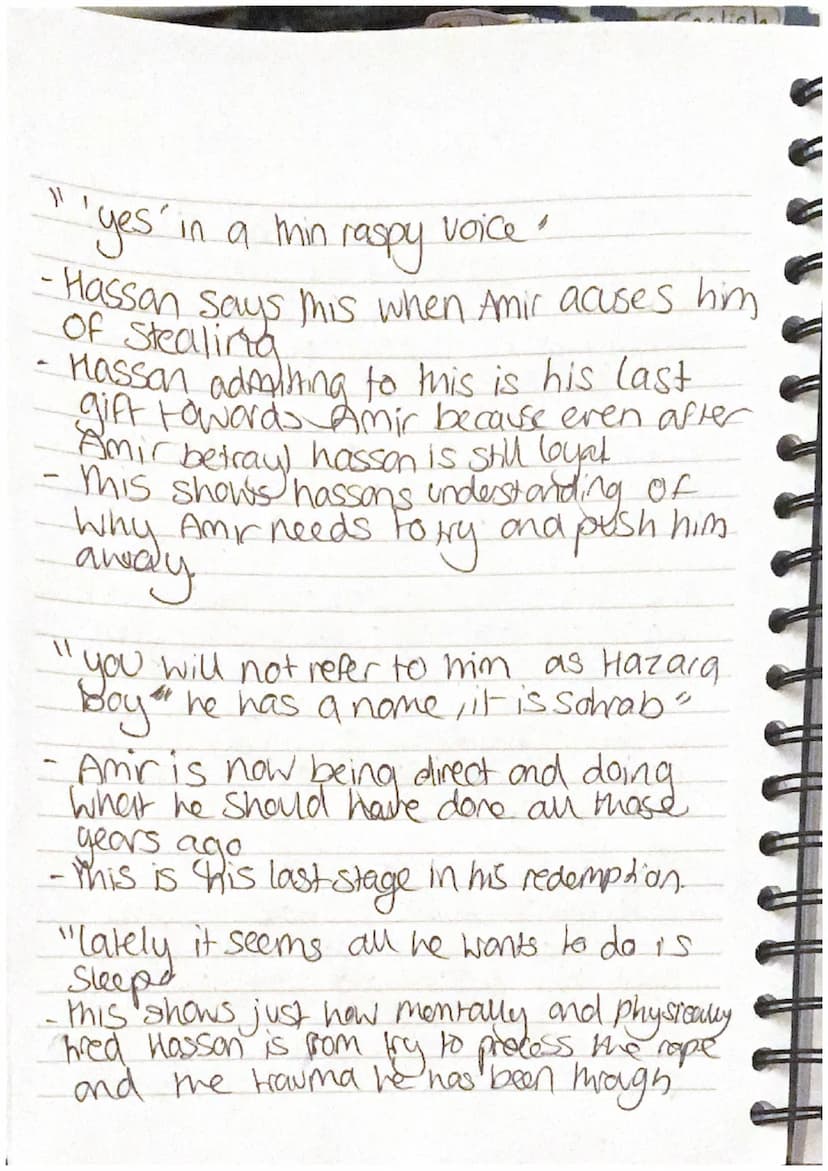 English
" 'yes' in a thin raspy voice '
- Hassan says this when Amir acuses him
of stealing
- Hassan admitting to this is his last
gift towards Amir because even after
Amir betrayl hassan is still loyal
- This shows hassans understanding of
why Amir needs to try and push him
away
"you will not refer to him as Hazara
boy" he has a name, it is Sohrab"
- Amir is now being direct and doing
what he should have done all those
years ago
- This is this last stage in his redemption.
"lately it seems all he wants to do is
sleep"
- this shows just how mentally and physically
tired Hassan is from try to process the rape
and the trauma he has been through